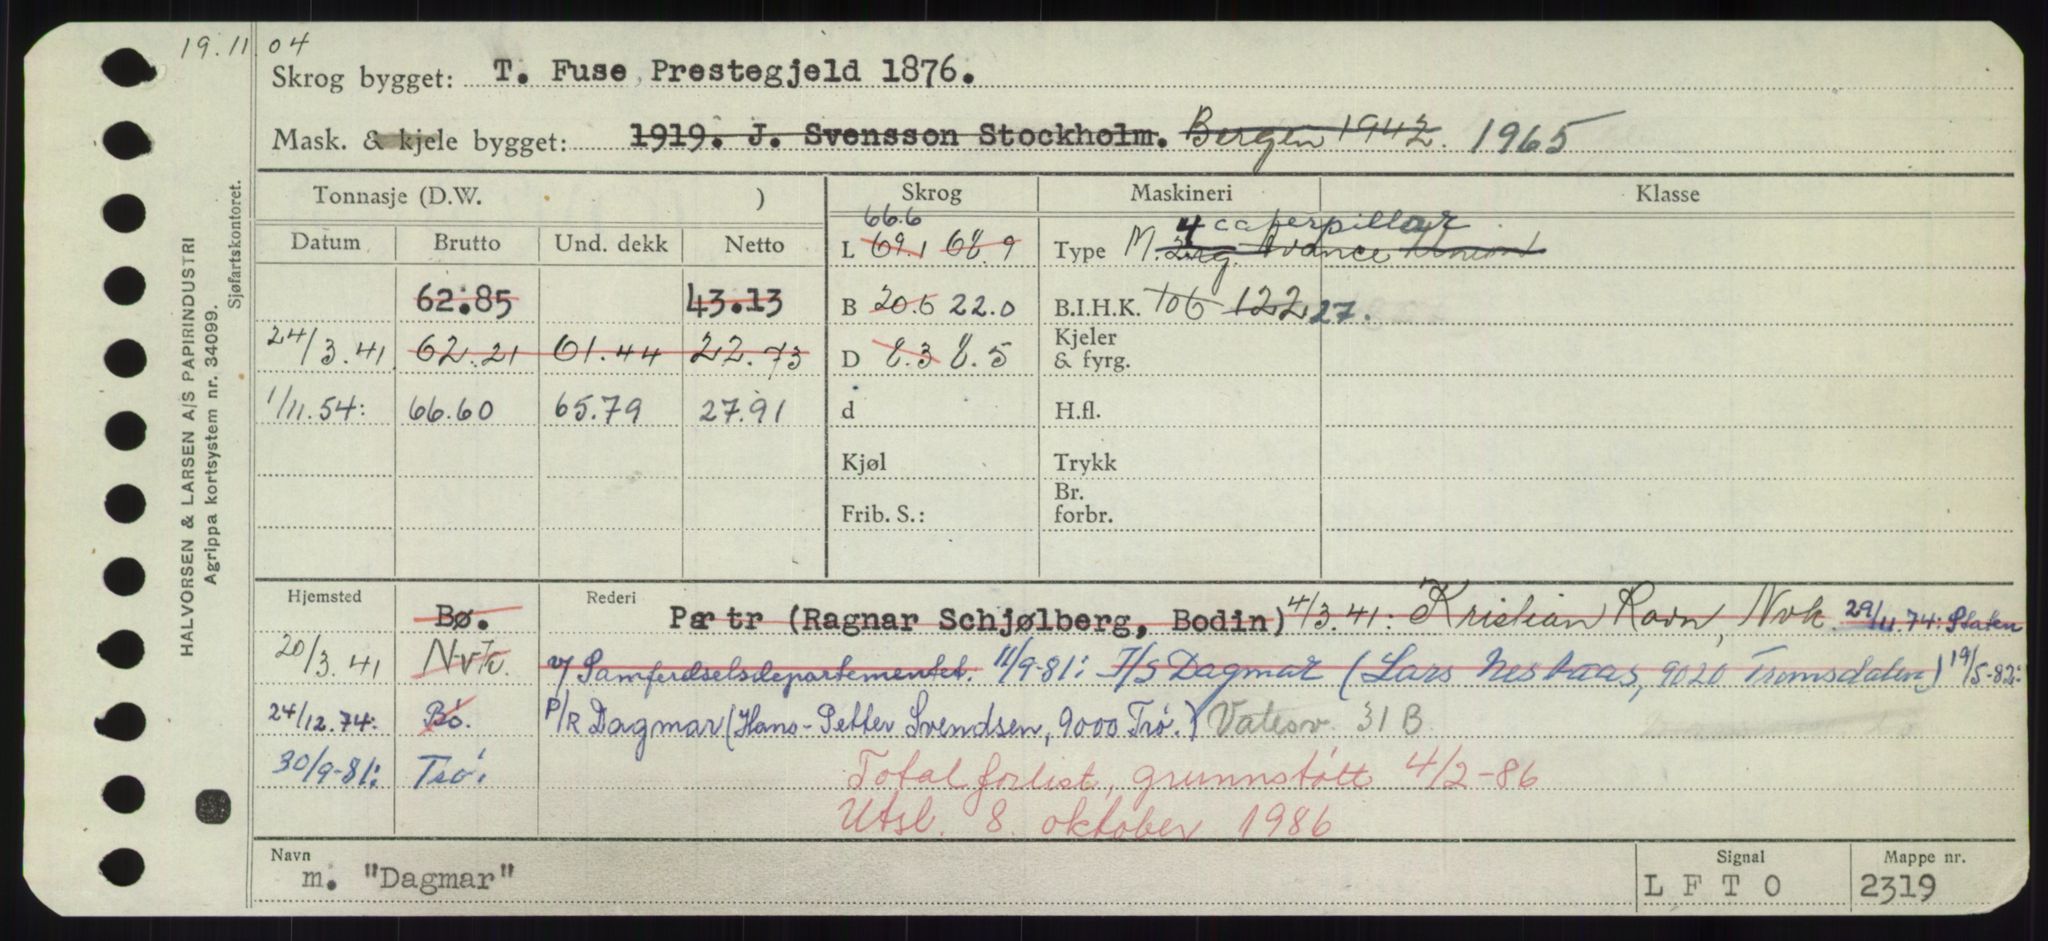 19.11.04
Skrog bygget: T. Fuse Prestegjeld 1876.
Mask. & kjele bygget: 1919. J. Svensson Stockholm. Bergen 1942. 1965
Tonnasje (D.W. ) Skrog Maskineri Klasse
Datum Brutto Und. dekk Netto
66.6
L 69.1 68.9
4 caterpillar
Type M. Avance
62.85 43.13
B 20.6 22.0
B.I.H.K. 106 122 27.
24/3.41 62.21 61.44 22.73
D 8.3 8.5
Kjeler & fyrg.
1/11.54: 66.60 65.79 27.91
d
H.fl.
Kjøl
Trykk
Frib. S.:
Br. forbr.
Hjemsted Bø. Rederi Partr (Ragnar Schjølberg, Bodin) 4/3.41: Kristian Ravn, Nvk. 29/11.74: Staten
20/3.41 Nvk. v/ Samferdselsdepartementet. 11/9-81: I/S Dagmar (Lars Neshaas, 9020 Tromsdalen) 19/5-82:
24/12.74: Bø. P/R Dagmar (Hans-Petter Svendsen, 9000 Trø.) Vatesv. 31 B
30/9-81: Tsø. Total forlist, grunnstøtt 4/2-86
Utsl. 8. oktober 1986
Navn m. "Dagmar"
Signal LFTO
Mappe nr. 2319
HALVORSEN & LARSEN A/S PAPIRINDUSTRI
Agrippa kortsystem nr. 34099.
Sjøfartskontoret.